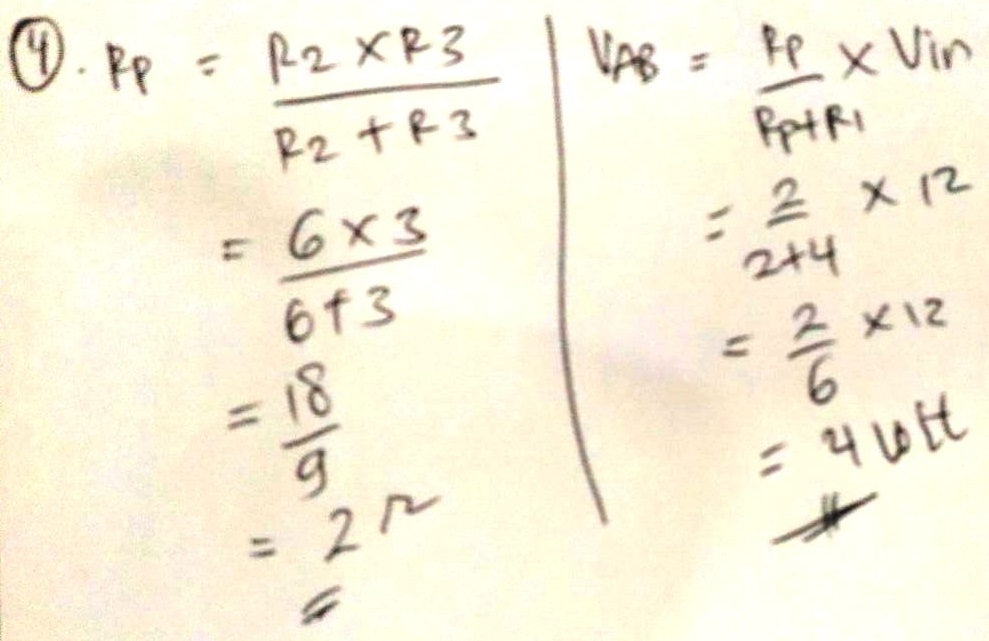 4. Rp = R2 x R3 / R2 + R3
= 6 x 3 / 6 + 3
= 18 / 9
= 2 Ω
VAB = Rp / Rp+R1 x Vin
= 2 / 2+4 x 12
= 2 / 6 x 12
= 4 Volt